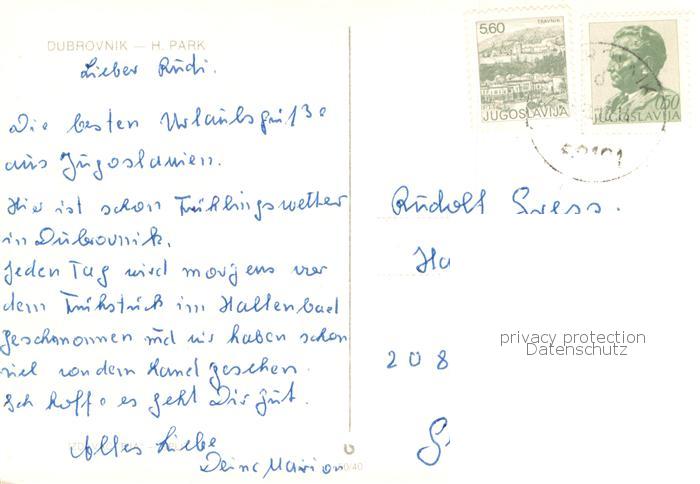 DUBROVNIK — H. PARK
Lieber Rudi.
Die besten Urlaubsgrüße
aus Jugoslawien.
Hier ist schon Frühlingswetter
in Dubrovnik.
Jeden Tag wird morgens vor
dem Frühstück im Hallenbad
geschwommen und wir haben schon
viel von dem Land gesehen.
Ich hoffe es geht Dir gut.
Alles Liebe
Deine Marion
TRAVNIK
5,60
JUGOSLAVIJA
0,50
JUGOSLAVIJA
50101
Rudolf
Ha
privacy protection
Datenschutz
208
S